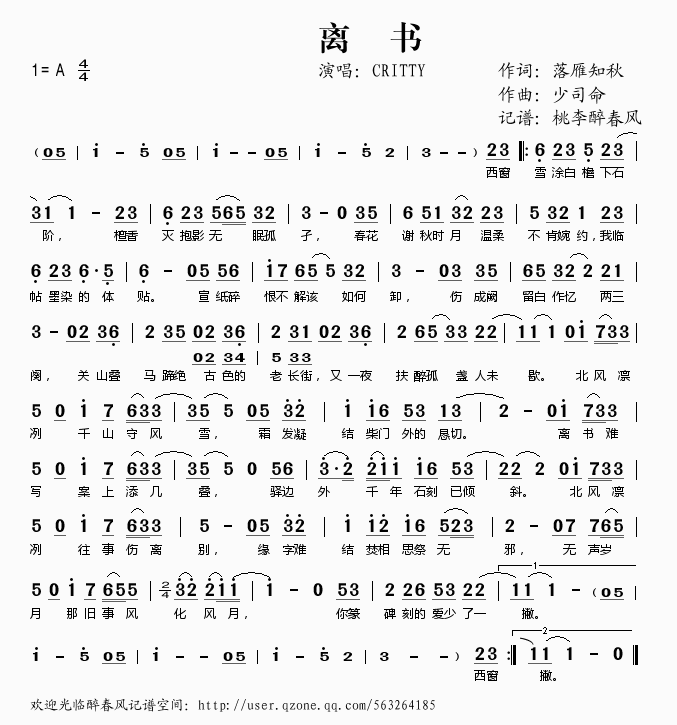 离 书
1= A 4/4 演唱: CRITTY 作词: 落雁知秋
作曲: 少司命
记谱: 桃李醉春风
(05 | i - 5 05 | i - - 05 | i - 5 2 | 3 - - ) 23 ‖: 6 23 5 23 |
西窗 雪 涂白 檐 下石
31 1 - 23 | 6 23 565 32 | 3 - 0 35 | 6 51 32 23 | 5 32 1 23 |
阶, 檀香 灭 抱影 无 眠孤 孑, 春花 谢 秋时 月 温柔 不 肯婉 约,我临
6 23 6·5 | 6 - 05 56 | i7 65 5 32 | 3 - 03 35 | 65 32 2 21 |
帖 墨染 的 体 贴。 宣 纸碎 恨不 解该 如何 卸, 伤 成阙 留白 作忆 两三
3 - 02 36 | 2 35 02 36 | 2 31 02 36 | 2 65 33 22 | 11 1 0i 733 |
02 34 | 5 33
阕, 关 山叠 马 蹄绝 古 色的 老 长街,又 一夜 扶 醉孤 盏 人未 歇。 北 风 凛
5 0 i 7 633 | 35 5 05 32 | i i6 53 13 | 2 - 0i 733 |
冽 千 山 守 风 雪, 霜 发凝 结 柴门 外的 悬切。 离 书 难
5 0 i 7 633 | 35 5 0 56 | 3·2 2ii i6 53 | 22 2 0i 733 |
写 案 上 添 几 叠, 驿边 外 千 年 石刻 已倾 斜。 北 风 凛
5 0 i 7 633 | 5 - 05 32 | i i2 i6 523 | 2 - 07 765 |
冽 往 事 伤 离 别, 缘 字难 结 焚相 思祭 无 邪, 无 声岁
5 0 i 7 655 | 2/4 32 2ii | i - 0 53 | 2 26 53 22 | 1 11 1 - (05 |
月 那 旧 事 风 化 风 月, 你篆 碑 刻的 爱少 了一 撇。
i - 5 05 | i - - 05 | i - 5 2 | 3 - - ) 23 :‖ 2 11 1 - 0 ‖
西窗 撇。
欢迎光临醉春风记谱空间: http://user.qzone.qq.com/563264185